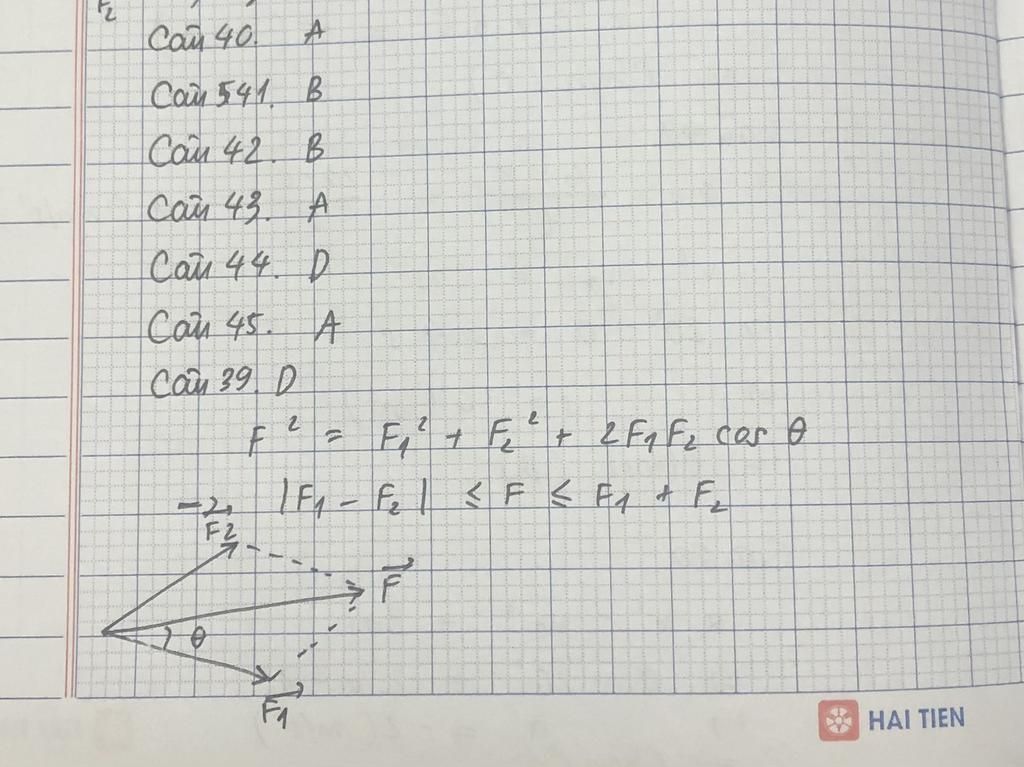 F₂
Câu 40. A
Câu 541. B
Câu 42. B
Câu 43. A
Câu 44. D
Câu 45. A
Câu 39. D
F² = F₁² + F₂² + 2F₁F₂ cos θ
|F₁ - F₂| ≤ F ≤ F₁ + F₂
F2
F
θ
F₁
HAI TIEN